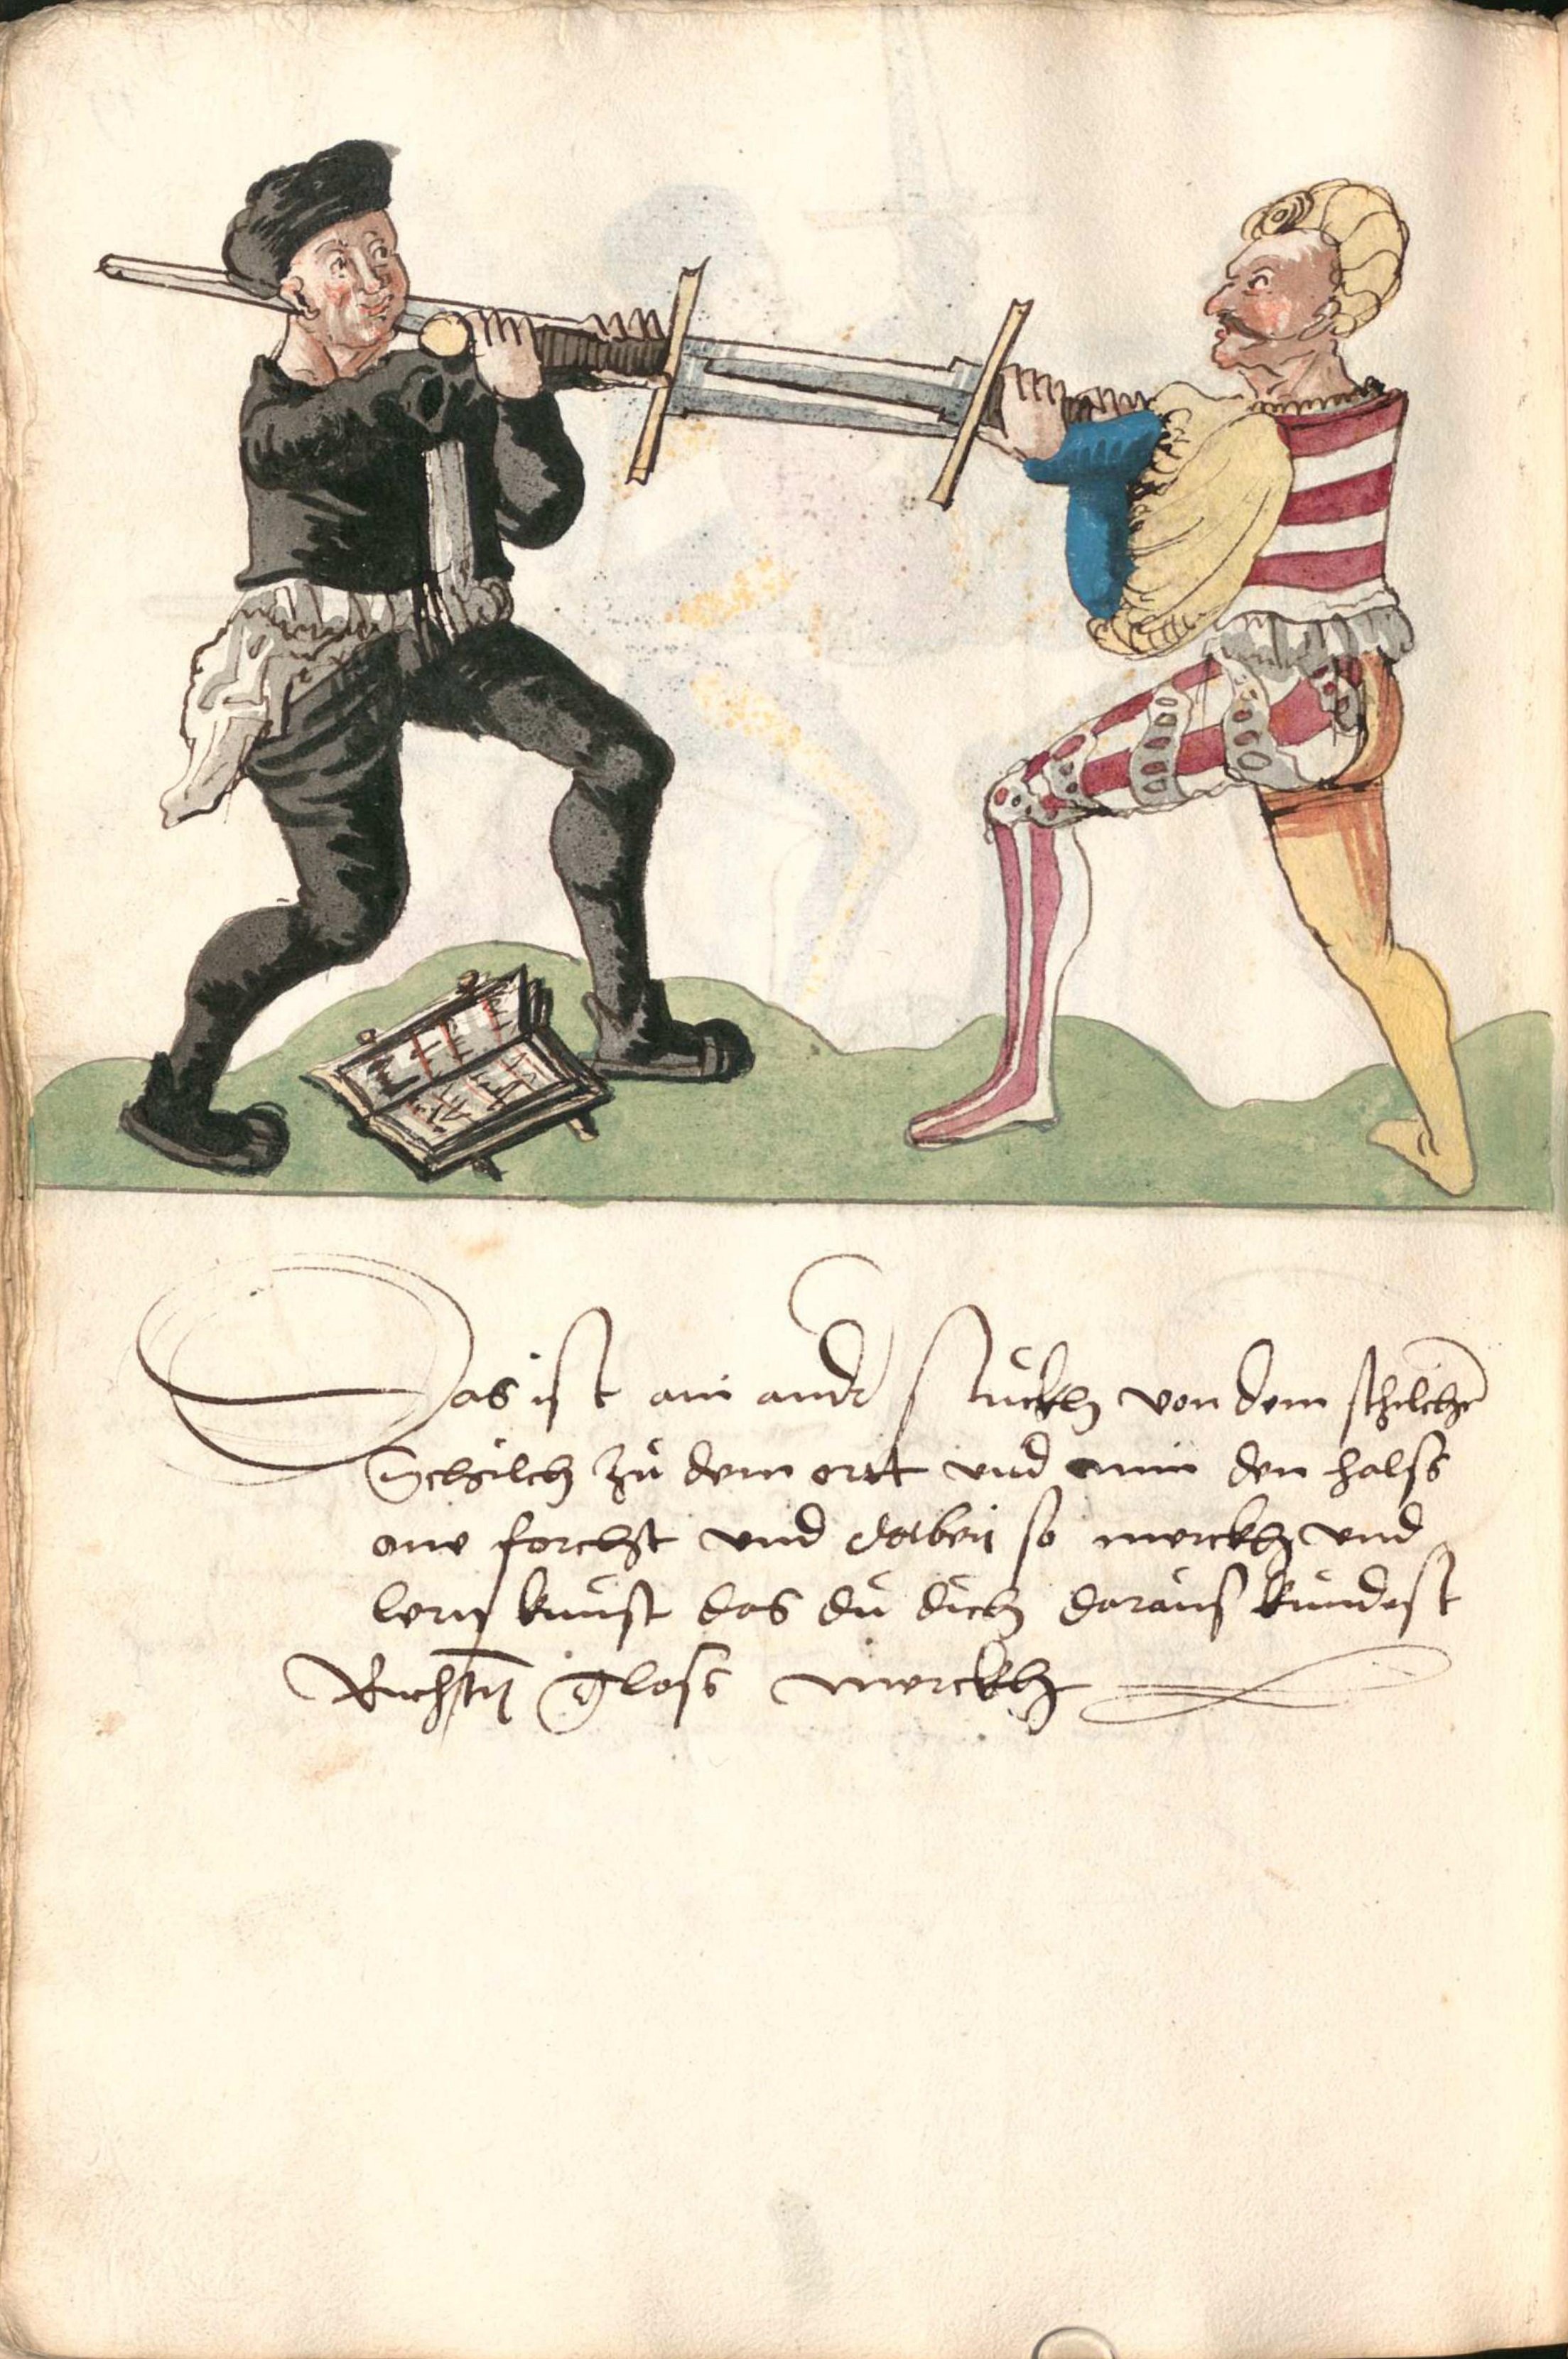 Das ist ain ander stuckh von dem schilche
Schilch zů dem ortt vnd nim den halss
one forcht vnd darbei so merckh vnd
lern kunst das dů dich daraus kundest
Richstn gloss merckh